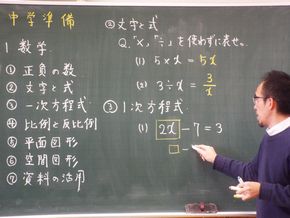 中学準備
1 数学
① 正負の数
② 文字と式
③ 一次方程式
④ 比例と反比例
⑤ 平面図形
⑥ 空間図形
⑦ 資料の活用
② 文字と式
Q.「×」「÷」を使わずに表せ。
(1) 5×x = 5x
(2) 3÷x = 3/x
③ 1次方程式
(1) 2x - 7 = 3
□ -